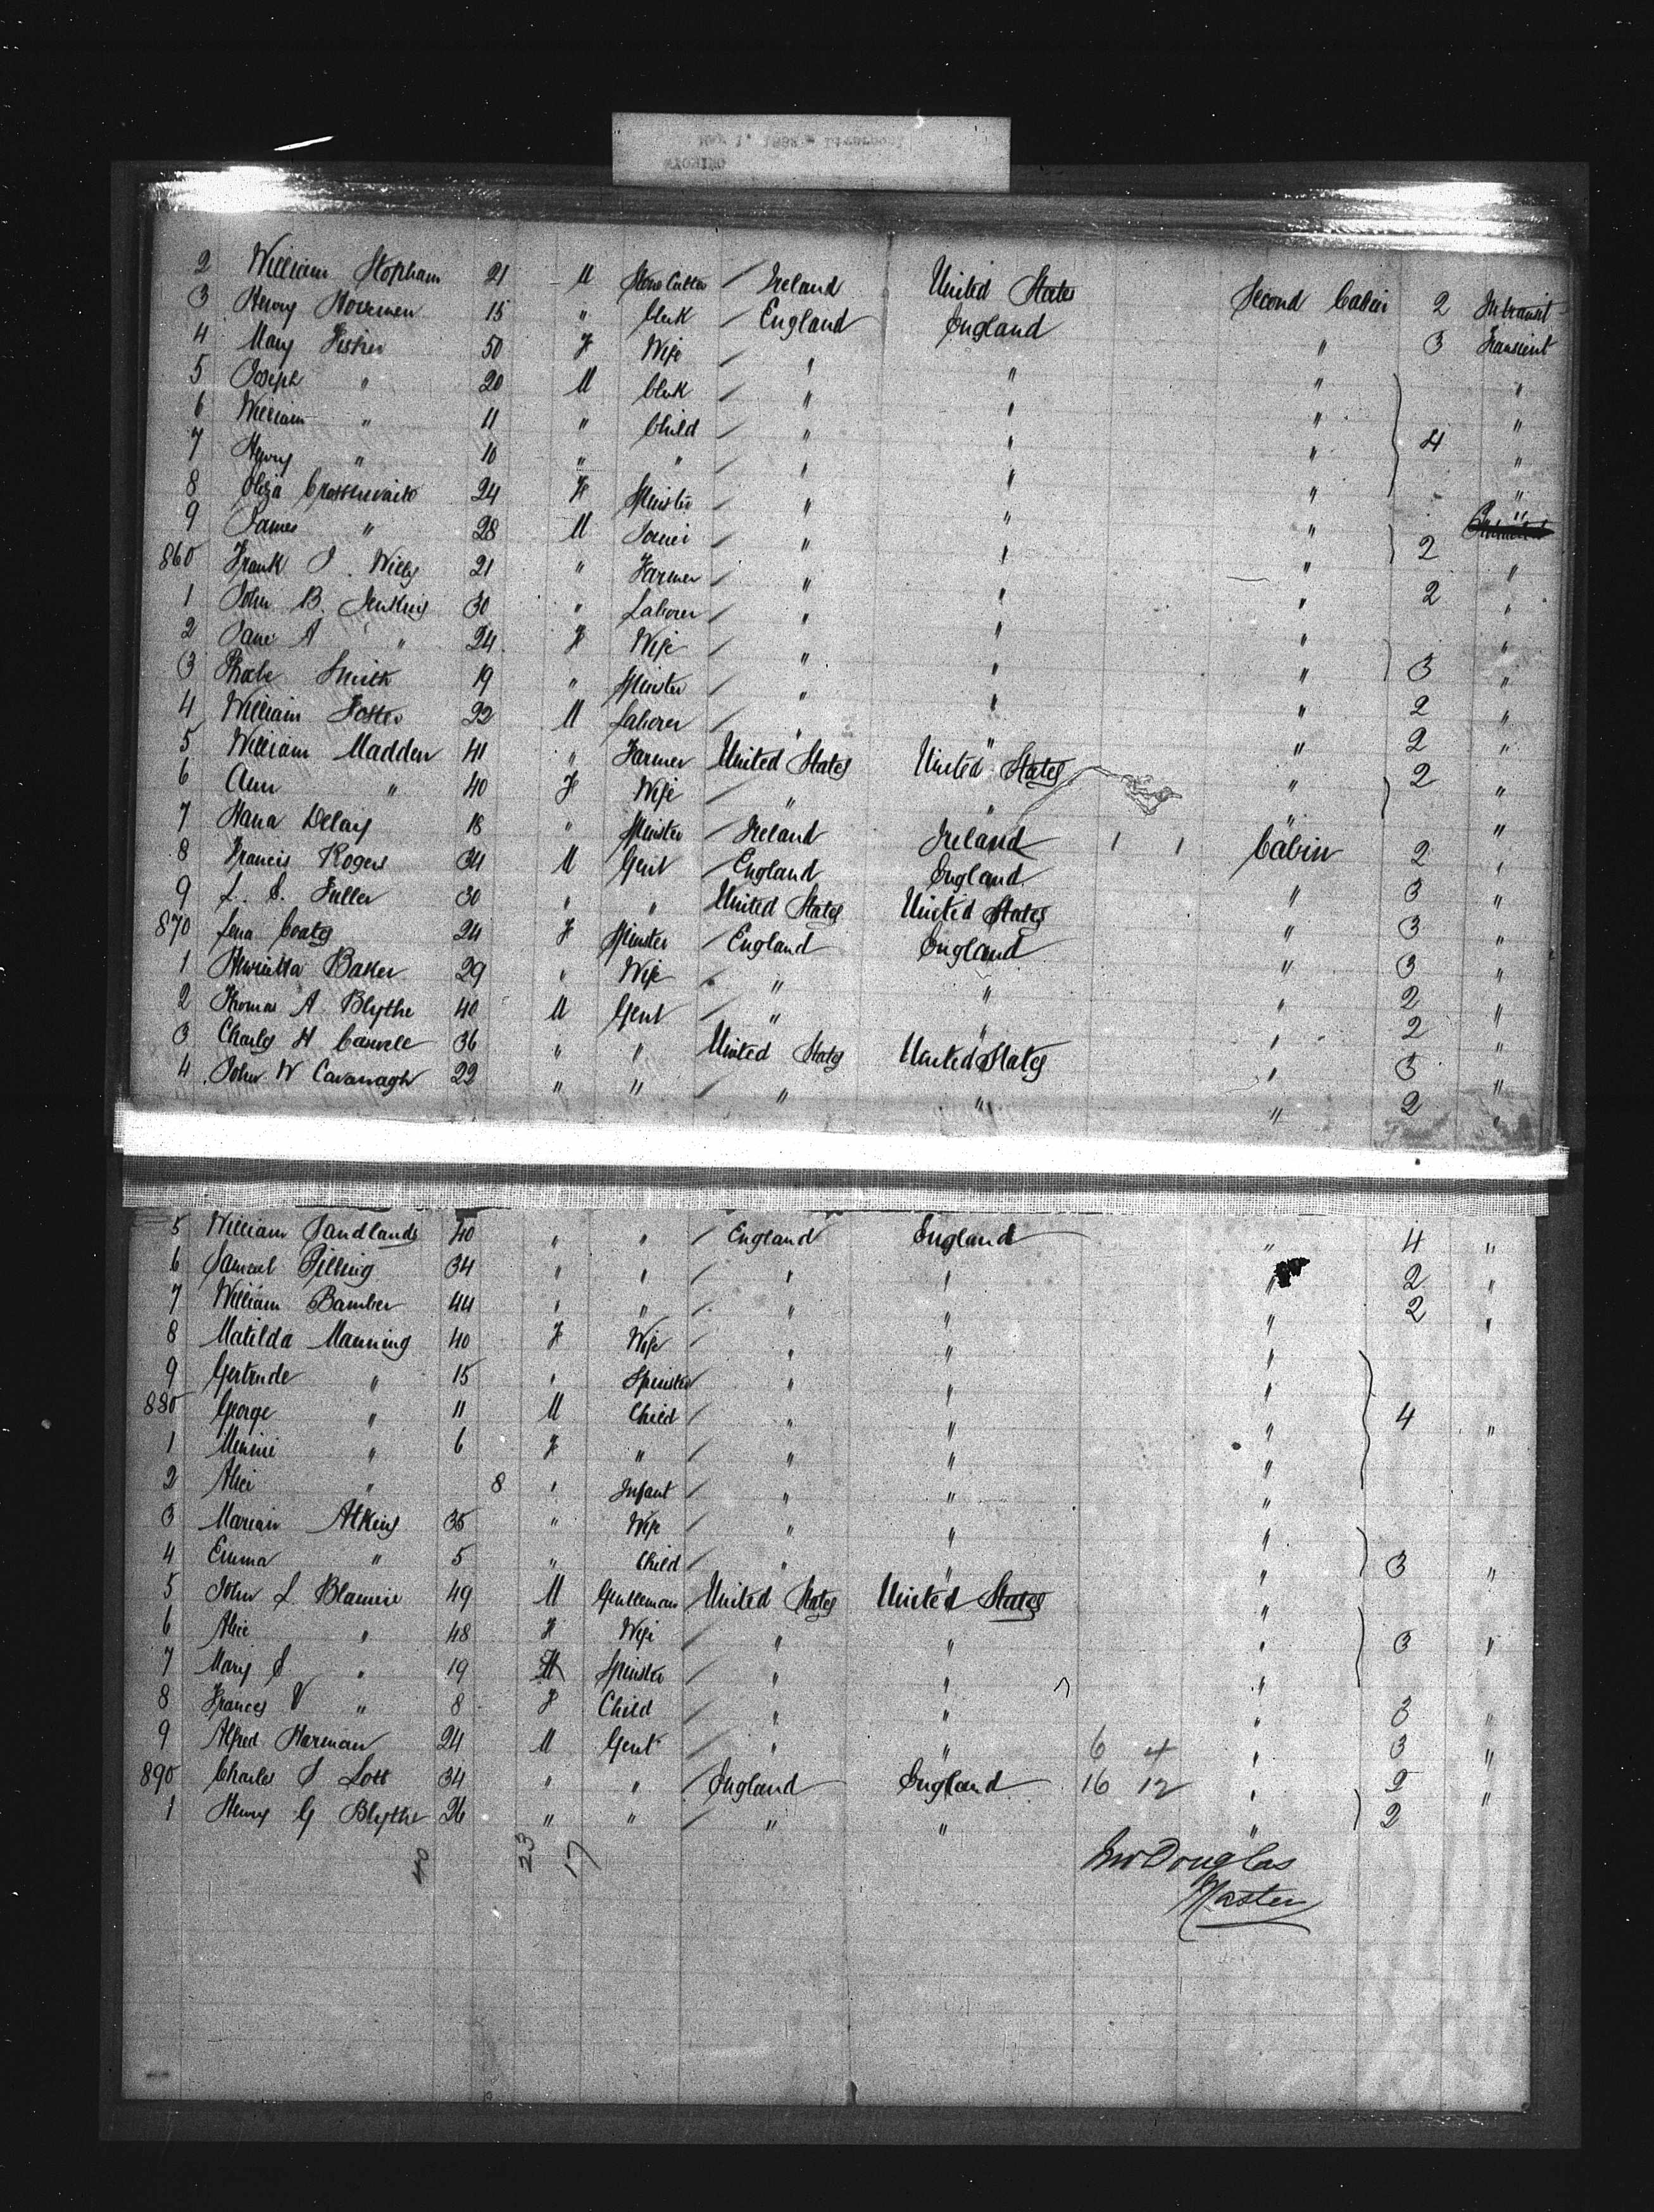 2 William Stopham 21 M Stone Cutter / Ireland United States Second Cabin 2 Intransit
3 Henry 15 " Clerk / England England " 3 Transient
4 Mary Fisher 50 F Wife / " " " "
5 Joseph " 20 M Clerk / " " " "
6 William " 11 " Child / " " " 4 "
7 Henry " 10 " " / " " " "
8 Eliza 24 F Spinster / " " " "
9 James " 28 M Joiner / " " " 2
860 Frank J. Wills 21 " Farmer / " " " 2 "
1 John B. Jenkins 30 " Laborer / " " " "
2 Jane A " 24 F Wife / " " " 3 "
3 Phoebe Smith 19 " Spinster / " " " 2 "
4 William Foster 22 M Laborer / " " " 2 "
5 William Madden 41 " Farmer United States United States " 2 "
6 Ann " 40 F Wife / " " " "
7 Hana Delay 18 " Spinster / Ireland Ireland 1 1 Cabin 2 "
8 Francis Rogers 34 M Gent / England England " 3 "
9 L. S. Fuller 30 " " United States United States " 3 "
870 Lena Coates 24 F Spinster / England England " 3 "
1 Henrietta Baker 29 " Wife / " " " 2 "
2 Thomas A. Blythe 40 M Gent / " " " 2 "
3 Charles H 36 " " United States United States " 3 "
4 John W Cavanagh 22 " " / " " " 2 "
5 William Sandlands 40 " " / England England " 4 "
6 Samuel Pilling 34 " " / " " " 2 "
7 William Bamber 44 " " / " " " 2 "
8 Matilda Manning 40 F Wife / " " "
9 Gertrude " 15 " Spinster / " " "
880 George " 11 M Child / " " " 4 "
1 Minnie " 6 F " / " " "
2 Alice " 8 " Infant / " " "
3 Marian Atkins 35 " Wife / " " "
4 Emma " 5 " Child / " " " 3 "
5 John L. Blamire 49 M Gentleman United States United States "
6 Alice " 48 F Wife / " " " 3 "
7 Mary S " 19 Spinster / " " "
8 Frances V " 8 F Child / " " " 3 "
9 Alfred Harman 24 M Gent / " " 6 4 " 3 "
890 Charles S Lott 34 " " / England England 16 12 " 2 "
1 Henry G Blythe 26 " " / " " " 2
40 23 17
Jno Douglas
Master